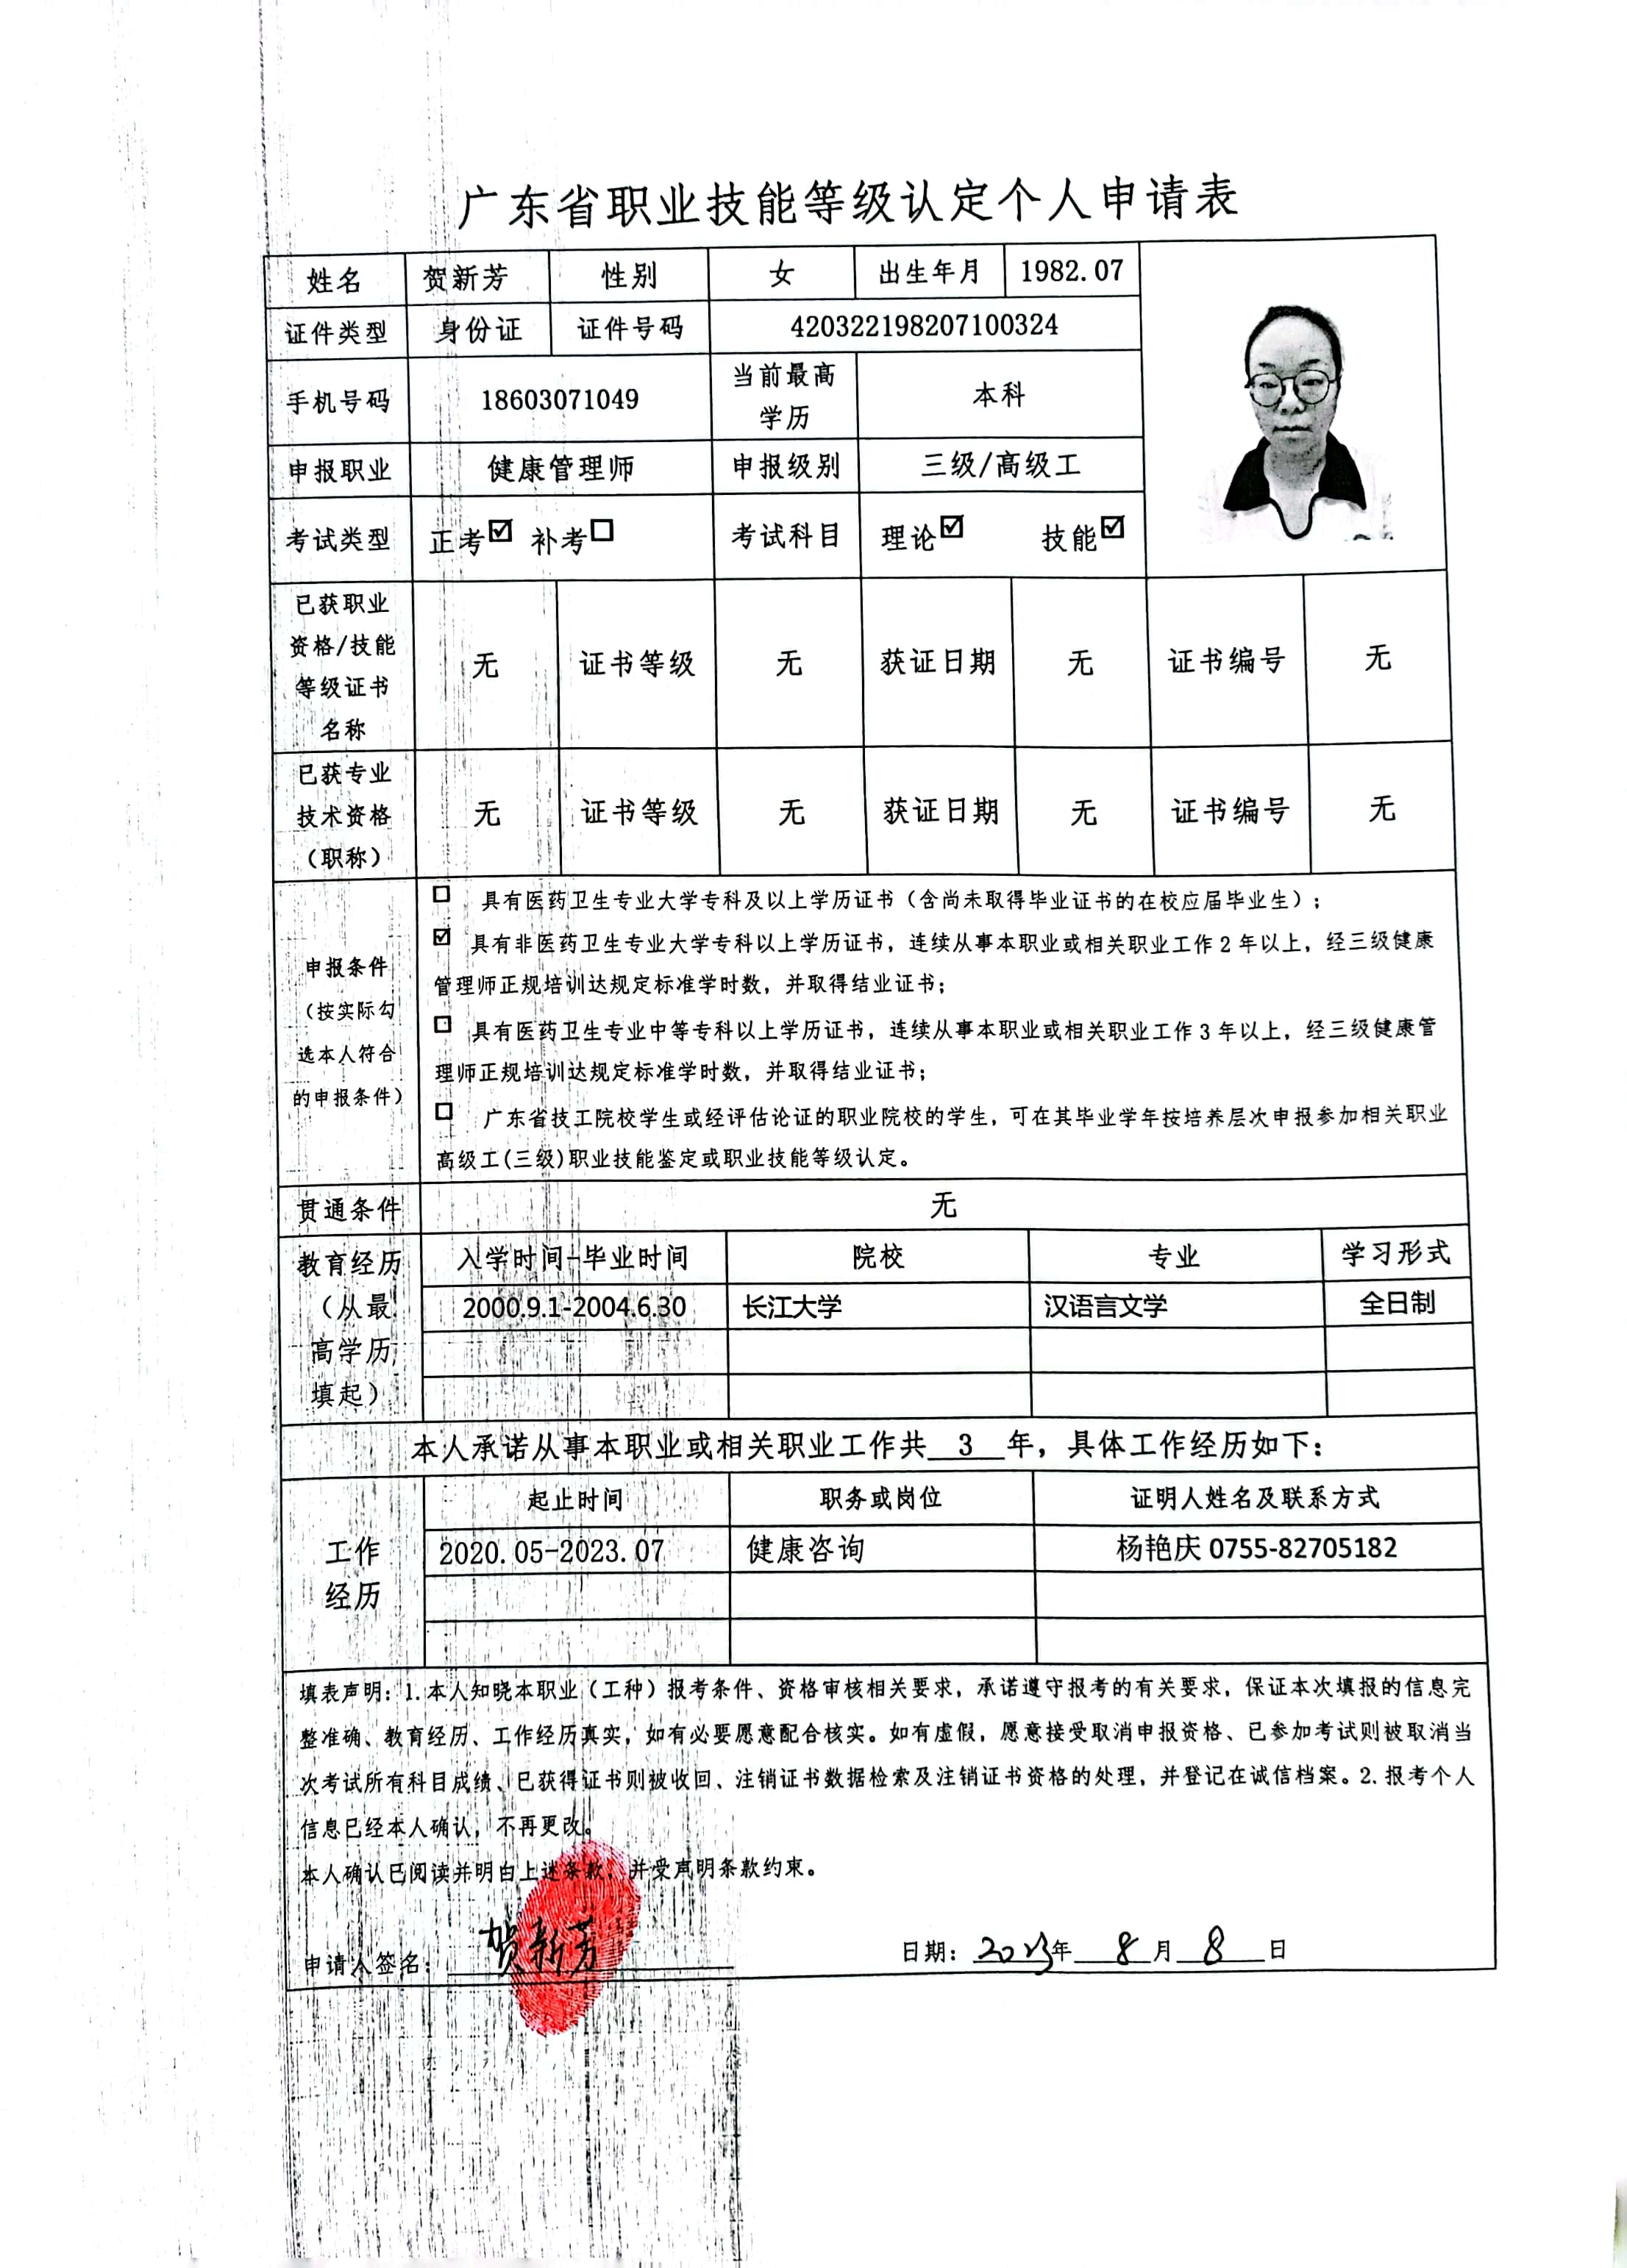 广东省职业技能等级认定个人申请表
姓名 贺新芳 性别 女 出生年月 1982.07
证件类型 身份证 证件号码 420322198207100324
手机号码 18603071049 当前最高学历 本科
申报职业 健康管理师 申报级别 三级/高级工
考试类型 正考☑ 补考☐ 考试科目 理论☑ 技能☑
已获职业
资格/技能
等级证书
名称
无 证书等级 无 获证日期 无 证书编号 无
已获专业
技术资格
(职称)
无 证书等级 无 获证日期 无 证书编号 无
申报条件
(按实际勾
选本人符合
的申报条件)
☐ 具有医药卫生专业大学专科及以上学历证书(含尚未取得毕业证书的在校应届毕业生);
☑ 具有非医药卫生专业大学专科以上学历证书,连续从事本职业或相关职业工作2年以上,经三级健康
管理师正规培训达规定标准学时数,并取得结业证书;
☐ 具有医药卫生专业中等专科以上学历证书,连续从事本职业或相关职业工作3年以上,经三级健康管
理师正规培训达规定标准学时数,并取得结业证书;
☐ 广东省技工院校学生或经评估论证的职业院校的学生,可在其毕业学年按培养层次申报参加相关职业
高级工(三级)职业技能鉴定或职业技能等级认定。
贯通条件 无
教育经历
(从最
高学历
填起)
入学时间-毕业时间 院校 专业 学习形式
2000.9.1-2004.6.30 长江大学 汉语言文学 全日制
本人承诺从事本职业或相关职业工作共 3 年,具体工作经历如下:
工作
经历
起止时间 职务或岗位 证明人姓名及联系方式
2020.05-2023.07 健康咨询 杨艳庆 0755-82705182
填表声明:1.本人知晓本职业(工种)报考条件、资格审核相关要求,承诺遵守报考的有关要求,保证本次填报的信息完
整准确、教育经历、工作经历真实,如有必要愿意配合核实。如有虚假,愿意接受取消申报资格、已参加考试则被取消当
次考试所有科目成绩、已获得证书则被收回、注销证书数据检索及注销证书资格的处理,并登记在诚信档案。2.报考个人
信息已经本人确认,不再更改。
本人确认已阅读并明白上述条款,并受声明条款约束。
申请人签名: 贺新芳 日期: 2023年 8 月 8 日